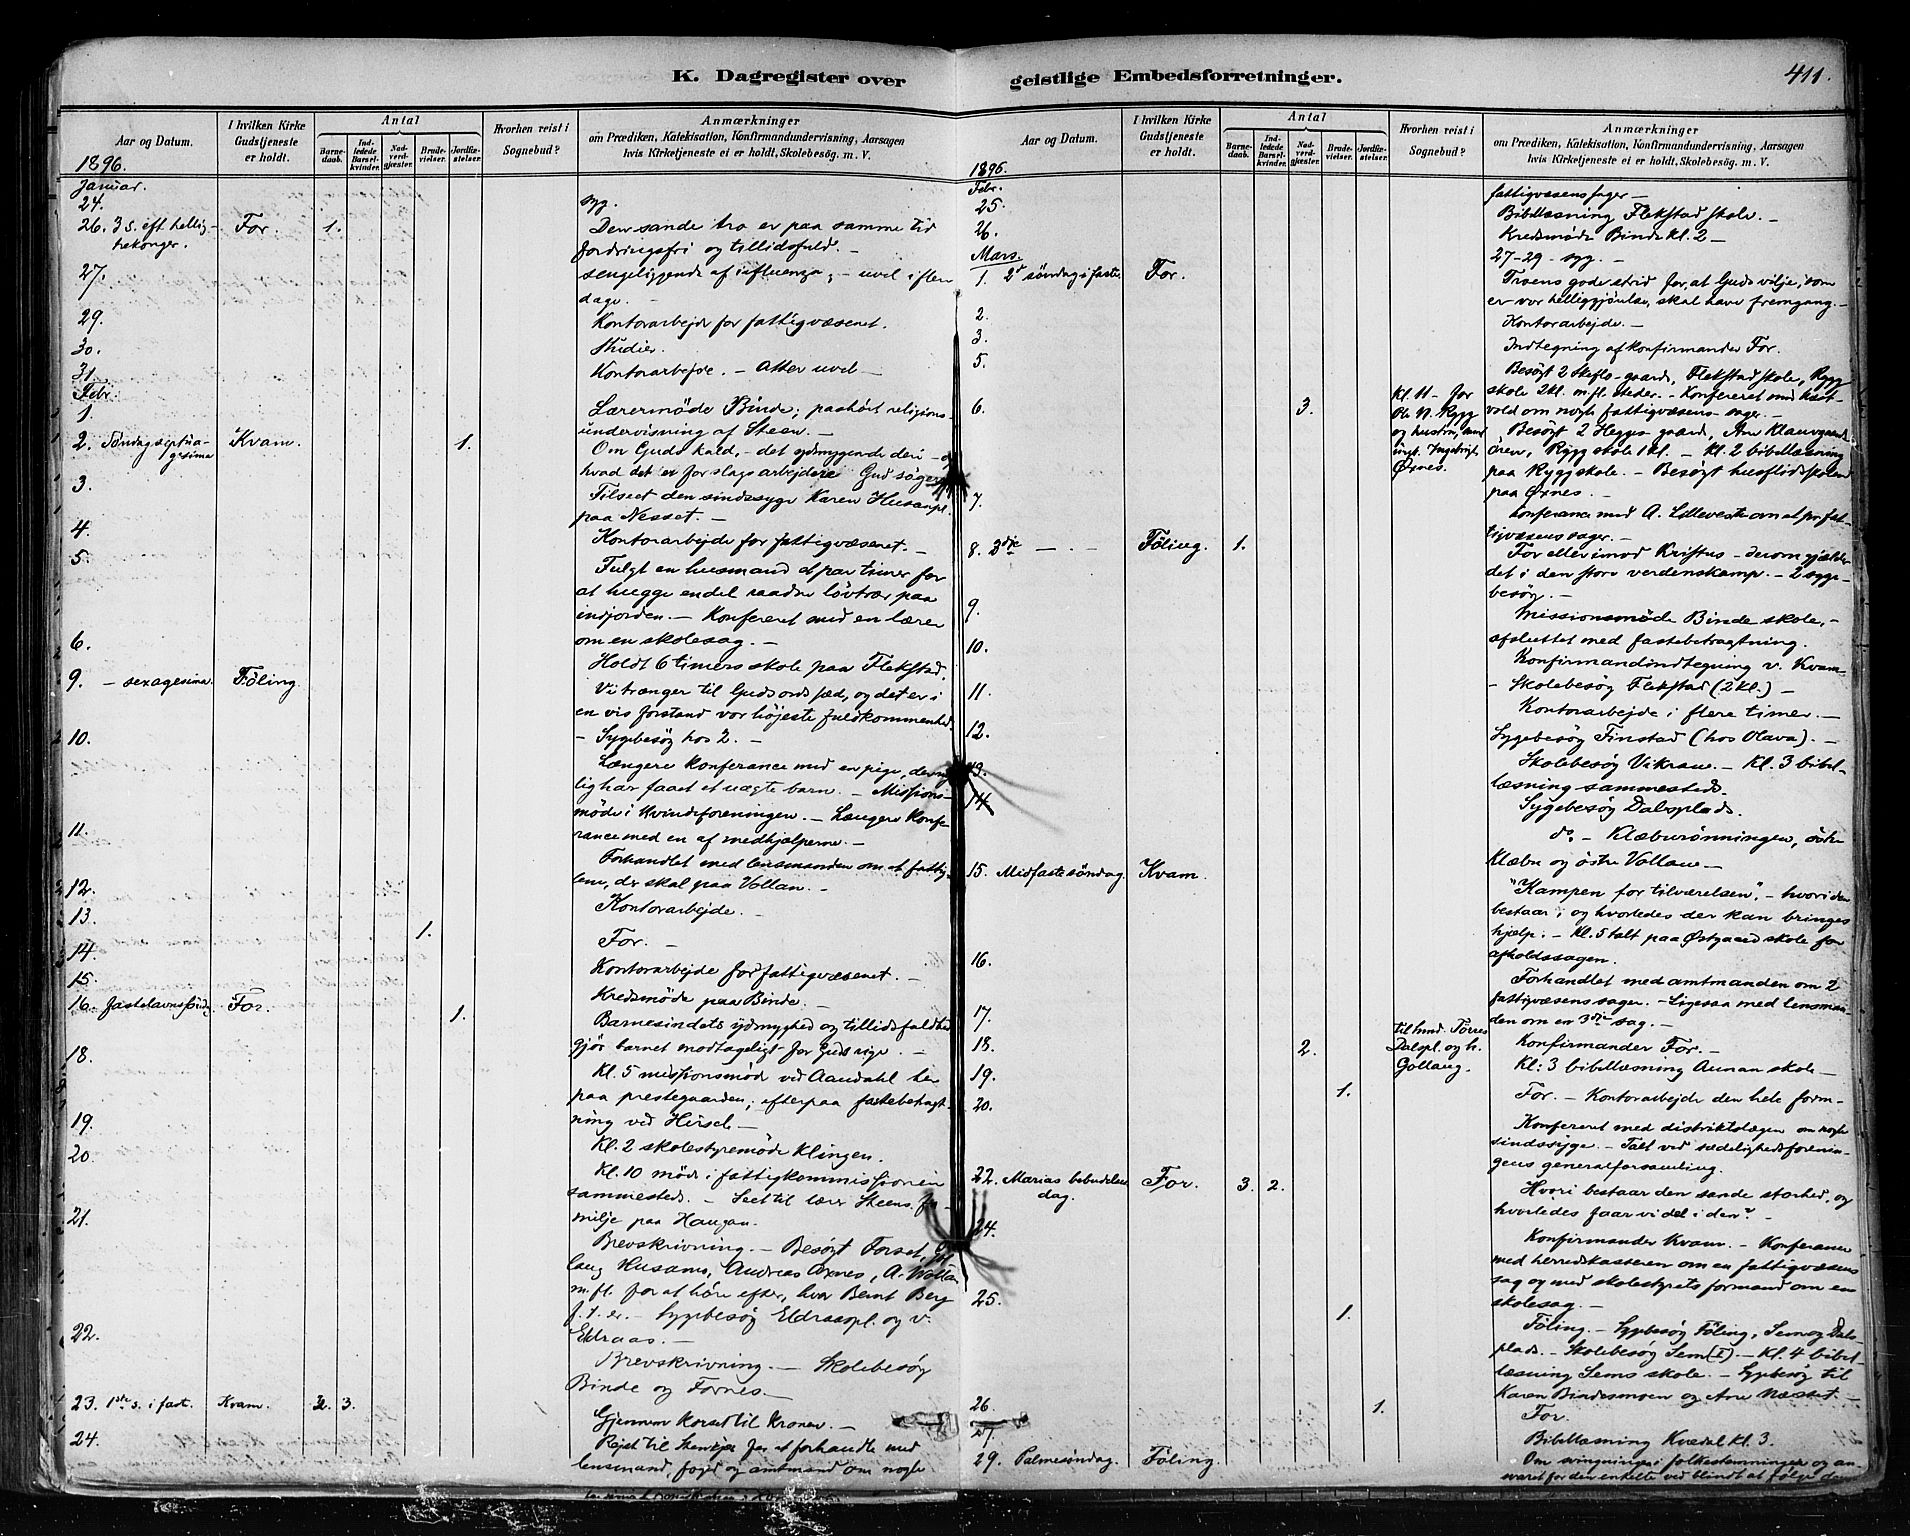 K. Dagregister over
Aar og Datum.
I hvilken Kirke Gudstjeneste er holdt.
Antal
Barnedaab.
Indledede Barselkvinder.
Nadverdgjester.
Brudevielser.
Jordfæstelser.
Hvorhen reist i Sognebud?
Anmærkninger
om Prædiken, Katekisation, Konfirmandundervisning, Aarsagen
hvis Kirketjeneste ei er holdt, Skolebesøg. m. V.
1896.
Januar.
24. syg.
26. 3 s. eft hellig- For. 1. Den sande tro er paa samme tid
trekonger. fordringsfri og tillidsfuld. -
27. sengeliggende af influenza; - uvel i flere
dage. -
29. Kontorarbejde for fattigvæsenet.
30. Studier.
31. Kontorarbejde. - Atter uvel -
Febr.
1. Lærermøde Binde; paahört religions-
undervisning af Steen. -
2. Söndag septua- Kvam. 1. Om Guds kald, - det ydmygende deri - og
gesima hvad det er for slags arbejdere Gud søger
3. Tilseet den sindssyge Karen Husaspl.
paa Nesset. -
4. Kontorarbejde for fattigvæsenet. -
5. Fulgt en husmand et par timer for
at hugge endel raadne lövtrær paa
insjorden. - Konfereret med en lærer
om en skolesag. -
6. Holdt 6 timers skole paa Flekstad.
9. - sexagesima. Föling. Vi trænger til Guds ords sæd, og det er i
en vis forstand vor højeste fuldkommenhed
- Sygebesøg hos 2. -
10. Længere konferance med en pige,
lig har faaet et uægte barn. - Missions-
möde i Kvindeforeningen. - Længere konfe-
rance med en af medhjælperne. -
11. Forhandlet med lensmanden om et fattig-
lem, der skal paa Vollan. -
12. Kontorarbejde. -
13. 1. For. -
14. Kontorarbejde for fattigvæsenet. -
15. Kredsmöde paa Binde. -
16. Fastelavnssönd. For. 1. Barnesindets ydmyghed og tillidsfuldhed
gjör barnet modtageligt for Guds rige. -
18. Kl. 5 missionsmöde ved Aandahl her
paa prestegaarden; efterpaa fastebetragt-
ning ved Hirsch -
19. Kl. 2 skolestyremöde Klingen.
20. Kl. 10 möde i fattigkommissionen
sammesteds. - Seet til lærer Steens fa-
milje paa Haugan.
21. Brevskrivning. - Besögt Forset,
laug Husams, Andreas Øxnes, A. Vollan
m.fl. for at höre efter, hvor Bernt Berg
f. t. er. - Sygebesøg Eldraaspl. og v.
Eldraas. -
22. Brevskrivning. - Skolebesög
Binde og Fornes. -
23. 1ste s. i fast. Kvam. 2. 3. Gjennem korset til kronen. -
24. Rejst til Stenkjær for at forhandle med
lensmand, foged og amtmand om nogle
geistlige Embedsforretninger.
411.
Aar og Datum.
I hvilken Kirke Gudstjeneste er holdt.
Antal
Barnedaab.
Indledede Barselkvinder.
Nadverdgjester.
Brudevielser.
Jordfæstelser.
Hvorhen reist i Sognebud?
Anmærkninger
om Prædiken, Katekisation, Konfirmandundervisning, Aarsagen
hvis Kirketjeneste ei er holdt, Skolebesøg m. V.
1896.
Febr. fattigvæsenssager -
25. Bibellæsning Flekstad skole. -
26. Kredsmöde Binde kl. 2 -
Mars. 27-29 - syg. -
1. 2d söndag i faste For. Troens gode strid for, at Guds vilje, som
er vor helliggjörelse, skal have fremgang. -
2. Kontorarbejde. -
3. Indtegning af konfirmander For.
5. Besögt 2 Skeflo-gaarde, Flekstad skole, Rygg
skole 2kl. m. fl. steder. - Konfereret med
vold om nogle fattigvæsens-sager. -
6. 3. Kl. 11 - for Ole N. Rygg og hustru, samt Ingebrigt Øxnes. Besögt 2 Hegge gaarde, Ane
ören, Rygg skole 1 kl. - Kl. 2 bibellæsning
paa Rygg skole. - Besögt husflidsskolen
paa Øxnes. -
7. Konferance med A. Lillevestre om et par fat-
tigvæsenssager. -
8. 3die - - Föling. 1. For eller imod Kristus - derom gjælder
det i den store verdenskamp. - 2 syge-
besög. -
9. Missionsmöde Binde skole, -
afsluttet med fastebetragtning.
10. Konfirmandindtegning v. Kvam-
- Skolebesög Flekstad (2 kl.) -
11. Kontorarbejde i flere timer. -
12. Sygebesög Finstad (hos Olava). -
13. Skolebesög Vikran. - Kl. 3 bibel-
læsning sammesteds.
14. Sygebesög Dalsplads.
do. - Klæburönningen, östre
Klæbu og östre Vollan -
15. Midfastesöndag. Kvam. "Kampen for tilværelsen". - hvori den
bestaar, og hvorledes der kan bringes
hjælp. - Kl. 5 talt paa Østgaard skole for
afholdssagen.
16. Forhandlet med amtmanden om 2
fattigvæsenssager. - Ligesaa med lensman-
den om en 3die sag. -
17. Konfirmander For. -
18. 2. til hmd. Torres Dalspl. og h. Gollaug. Kl: 3 bibellæsning Aunan skole -
19. 1. For. - Kontorarbejde den hele form-
20. Konfereret med distriktslægen om nogle
sindssyge. - Talt ved sædelighedsforenin-
gens generalforsamling.
22. Marias bebudelses For. 3. 2. Hvori bestaar den sande storhed, og
dag. hvorledes faar vi del i den? -
24. Konfirmander Kvam. - Konferance
med herredskassereren om en fattigvæsens
sag og med skolestyrets formand om en
skolesag. -
25. 1. Föling. - Sygebesög Föling, Sem og Dals-
plads. - Skolebesög Sem (I). - Kl. 4 bibel-
læsning Sems skole. - Sygebesög til
Karen Bindesmoen og Ane Næsset. -
26. 1. For.
27. Bibellæsning Kvedal kl. 3.
29. Palmesöndag. Föling. Om svingninger i folkestemningen og an-
svaret for den enkelte ved blindt at følge den